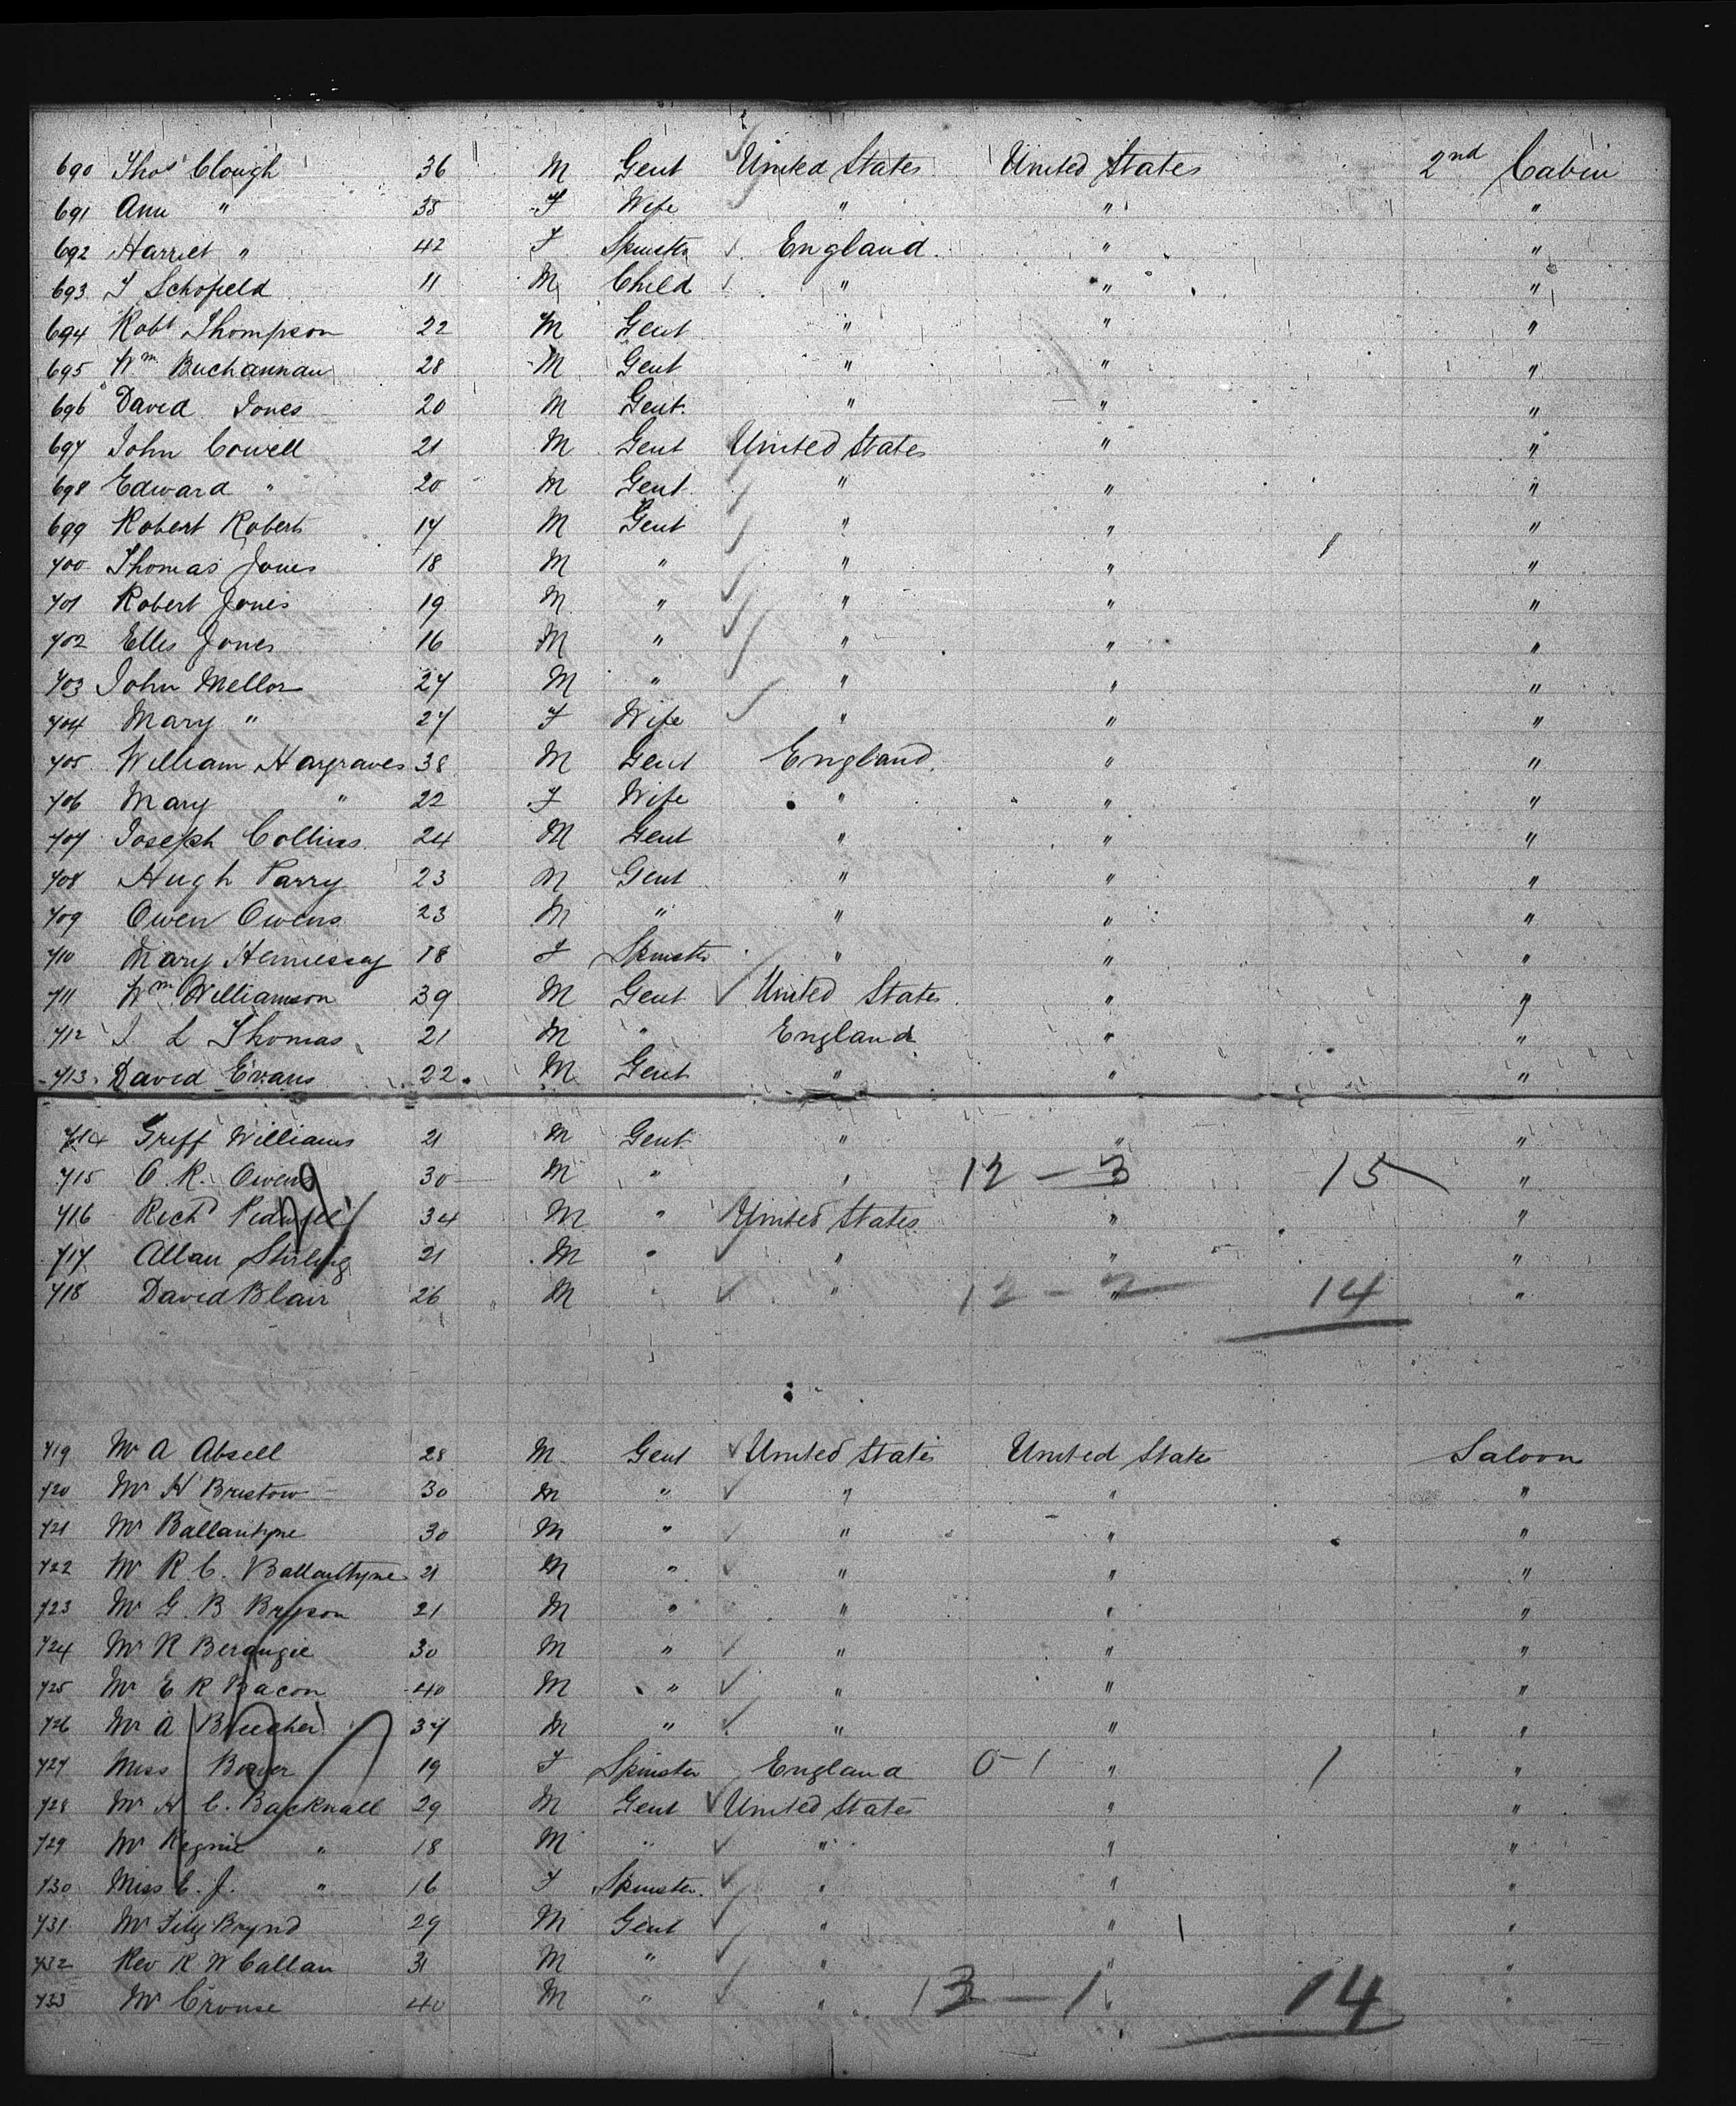 690 Thos Clough 36 M Gent United States United States 2nd Cabin
691 Ann " 38 F Wife " " "
692 Harriet " 42 F Spinster England " "
693 J Schofield 11 M Child " " "
694 Robt Thompson 22 M Gent " " "
695 Wm Buchannan 28 M Gent " " "
696 David Jones 20 M Gent " " "
697 John Cowell 21 M Gent United States " "
698 Edward " 20 M Gent " " "
699 Robert Roberts 17 M Gent " " "
700 Thomas Jones 18 M " " " "
701 Robert Jones 19 M " " " "
702 Elles Jones 16 M " " " "
703 John Mellor 27 M " " " "
704 Mary " 27 F Wife " " "
705 William Hargraves 38 M Gent England " "
706 Mary " 22 F Wife " " "
707 Joseph Collins 24 M Gent " " "
708 Hugh Parry 23 M Gent " " "
709 Owen Owens 23 M " " " "
710 Mary Hennessey 18 F Spinster " " "
711 Wm Williamson 39 M Gent United States " "
712 J L Thomas 21 M " England " "
713 David Evans 22 M Gent " " "
714 Griff Williams 21 M Gent " " "
715 O. R. Owens 30 M " " 12 - 3 15 "
716 Richd 34 M " United States " "
717 Allan Stirling 21 M " " " "
718 David Blair 26 M " " 12 - 2 " 14 "
719 Mr A Absell 28 M Gent United States United States Saloon
720 Mr H Bristow 30 M " " " "
721 Mr Ballantyne 30 M " " " "
722 Mr R. C. Ballantyne 21 M " " " "
723 Mr G. B Bryson 21 M " " " "
724 Mr R Berangie 30 M " " " "
725 Mr E R Bacon 40 M " " " "
726 Mr A Beecher 37 M " " " "
727 Miss Bower 19 F Spinster England 0 - 1 " 1 "
728 Mr H C. Backnall 29 M Gent United States " "
729 Mr " 18 M " " " "
730 Miss C. J. " 16 F Spinster " " "
731 Mr Fitz Brynd 29 M Gent " " "
732 Rev R W Callan 31 M " " " "
733 Mr Crouse 40 M " " 13 - 1 " 14 "